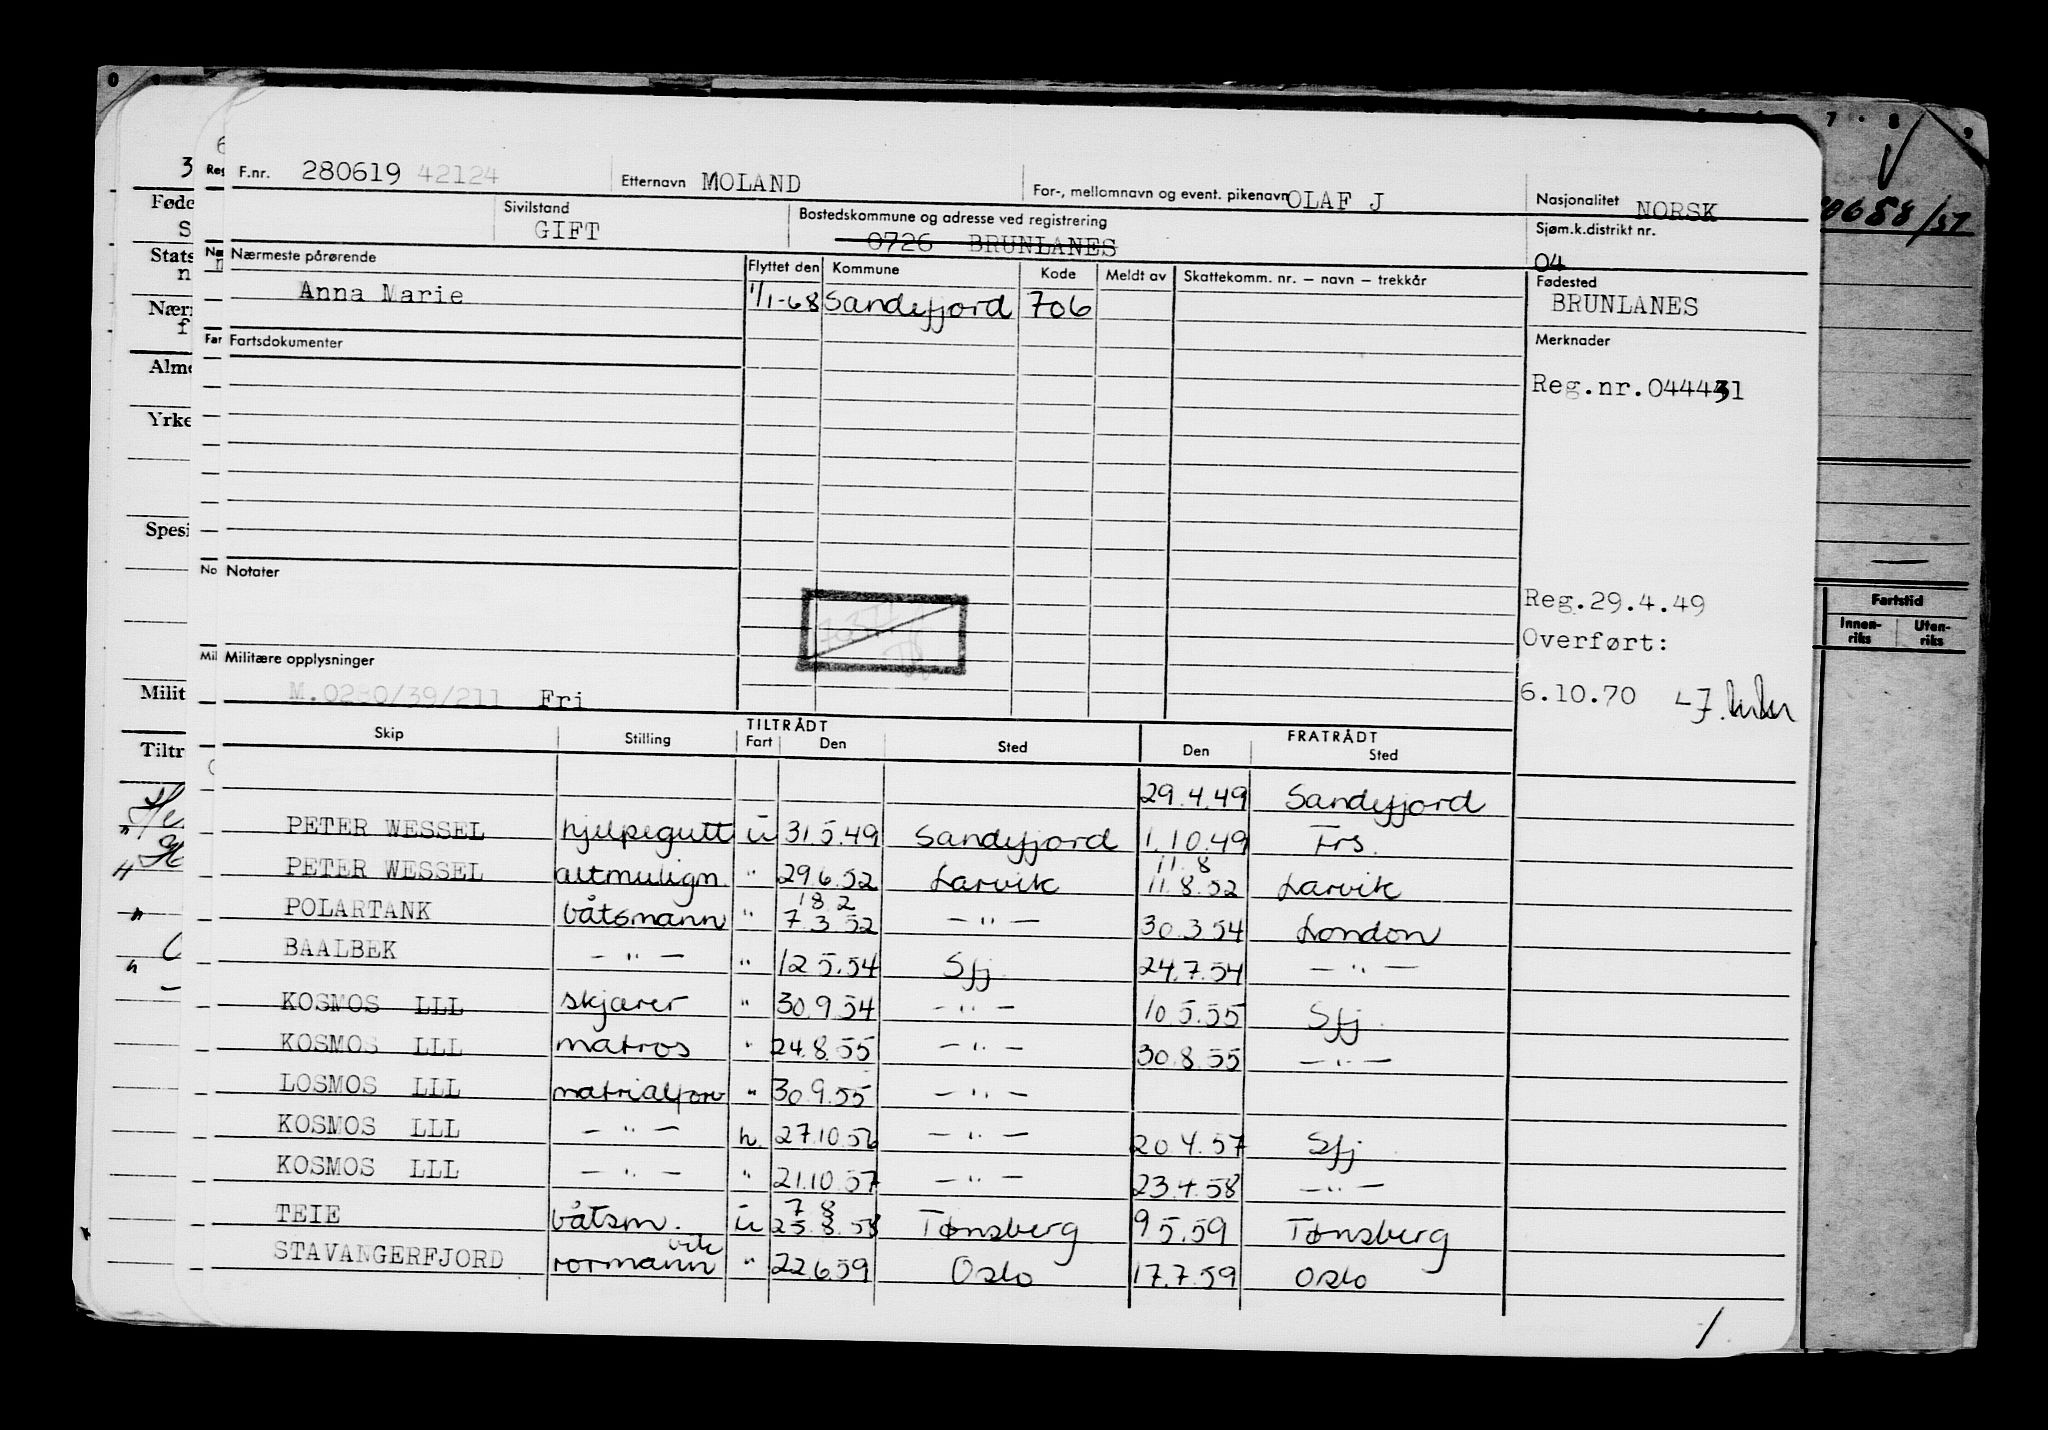 F.nr. 280619 42124 Etternavn MOLAND For-, mellomnavn og event. pikenavn OLAF J Nasjonalitet NORSK
Sivilstand GIFT Bostedskommune og adresse ved registrering 0726 BRUNLANES Sjøm.k.distrikt nr. 04
Nærmeste pårørende Flyttet den Kommune Kode Meldt av Skattekomm. nr. – navn – trekkår Fødested
Anna Marie 1/1-68 Sandefjord 706 BRUNLANES
Fartsdokumenter Merknader
Reg.nr.044431
Notater
Reg.29.4.49
Overført:
Militære opplysninger
M.0280/39/211 Fri 6.10.70
Skip Stilling TILTRÅDT Fart Den Sted FRATRÅDT Den Sted
29.4.49 Sandefjord
PETER WESSEL hjelpegutt u 31.5.49 Sandefjord 1.10.49 Frs.
11.8
PETER WESSEL altmuligm. " 29.6.52 Larvik 11.8.52 Larvik
18 2
POLARTANK båtsmann " 7.3.52 — " — 30.3.54 London
BAALBEK — " — " 12.5.54 Sfj 24.7.54 — " —
KOSMOS LLL skjærer " 30.9.54 — " — 10.5.55 Sfj.
KOSMOS LLL matros " 24.8.55 — " — 30.8.55 — " —
LOSMOS LLL matrialforv " 30.9.55 — " —
KOSMOS LLL — " — h. 27.10.56 — " — 20.4.57 Sfj
KOSMOS LLL — " — " 21.10.57 — " — 23.4.58 — " —
7 8
TEIE båtsm. u 25.8.58 Tønsberg 9.5.59 Tønsberg
vik
STAVANGERFJORD rormann " 22.6.59 Oslo 17.7.59 Oslo
1
Fartstid
Innen-riks Uten-riks
7 8 9